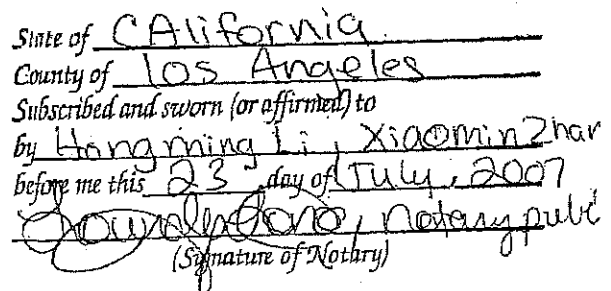 State of CAlifornia
County of Los Angeles
Subscribed and sworn (or affirmed) to
by Hongming Li, Xiaomin Zhan
before me this 23 day of July, 2007
, notary publi
(Signature of Notary)